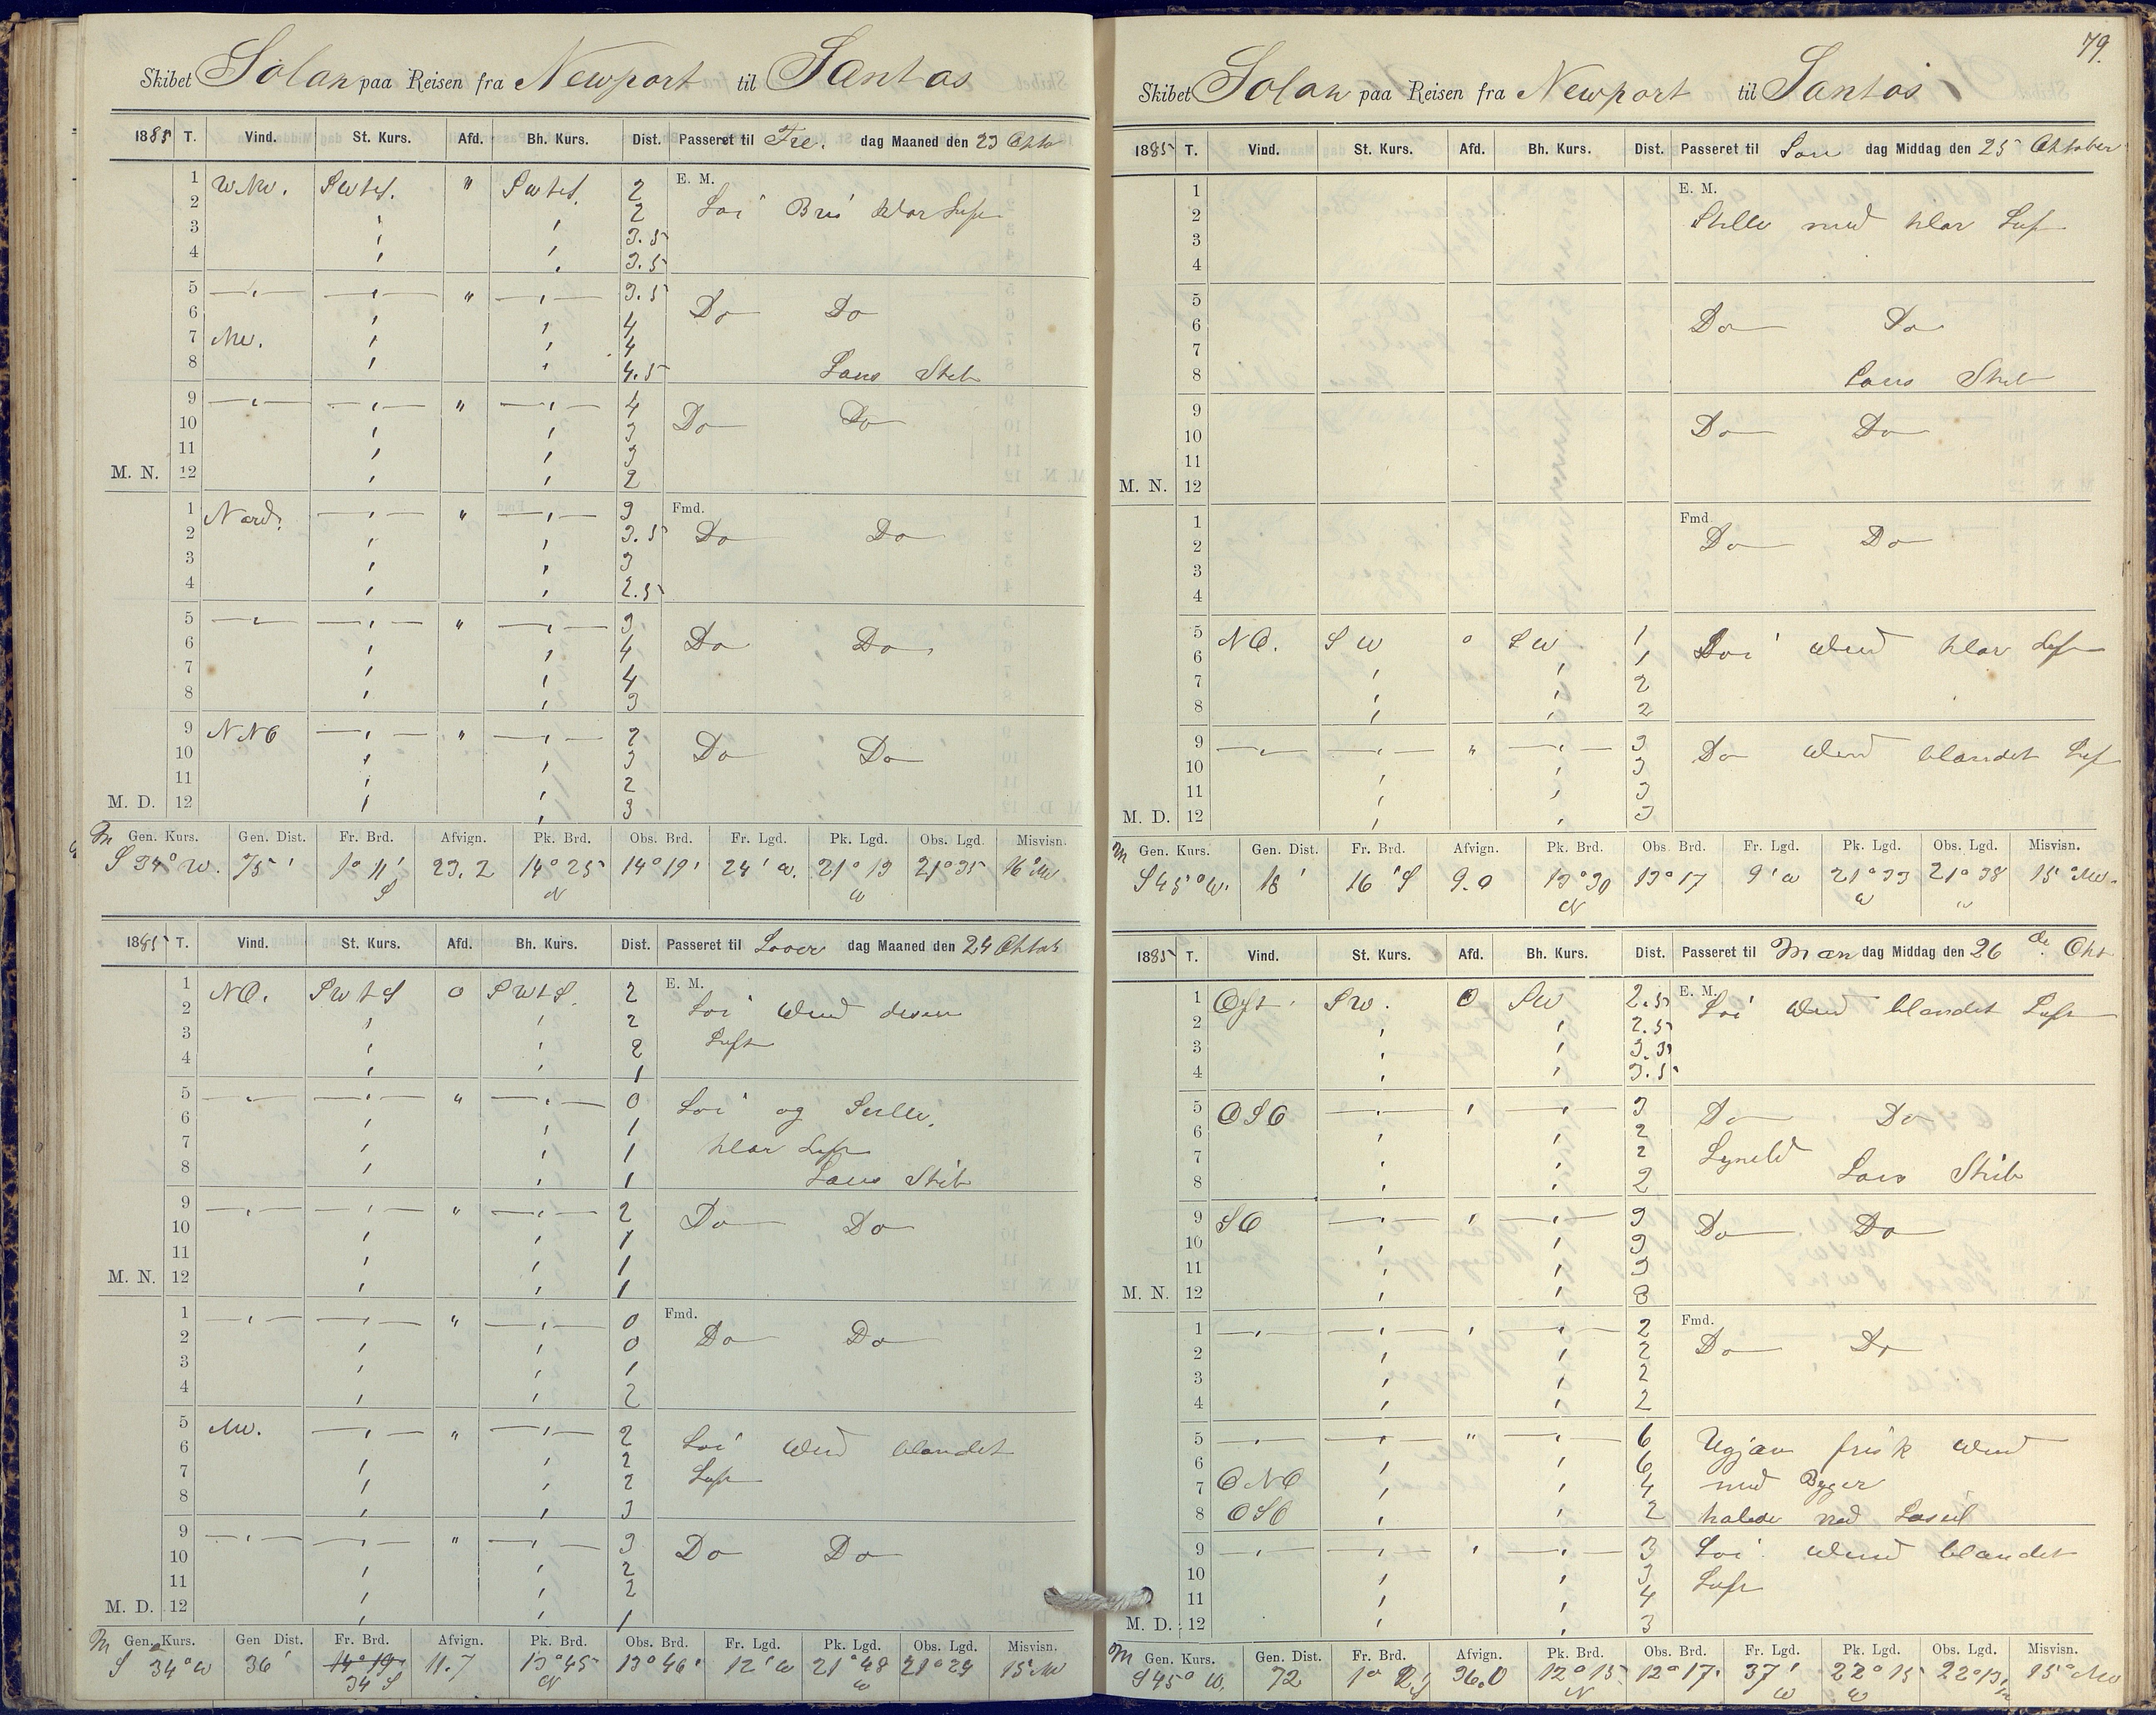 79.
Skibet Solan paa Reisen fra Newport til Santos
1885 T. Vind. St. Kurs. Afd. Bh. Kurs. Dist. Passeret til Fre. dag Maaned den 23 Okto
E. M.
1 WNW. SWtS. " SWtS. 2
2 2 Loi Bris klar Luft
3 3.5
4 3.5
5 " 3.5
6 4 Do Do
7 NW. 4
8 4.5 Lans Skib
9 " 4
10 3 Do Do
11 3
M. N. 12 2
1 Nord. " 3 Fmd.
2 3.5 Do Do
3 3
4 2.5
5 " 3
6 4 Do Do
7 4
8 3
9 NNO " 2
10 3 Do Do
11 2
M. D. 12 3
Gen. Kurs. Gen. Dist. Fr. Brd. Afvign. Pk. Brd. Obs. Brd. Fr. Lgd. Pk. Lgd. Obs. Lgd. Misvisn.
S 34° W. 75' 1° 11' S 23.2 14° 25 N 14° 19' 24' W. 21° 13 W 21° 35 16° NW
1885 T. Vind. St. Kurs. Afd. Bh. Kurs. Dist. Passeret til Lover dag Maaned den 24 Oktob
E. M.
1 NO. SWtS 0 SWtS. 2
2 2 Loi Wind disen
3 2 Luft
4 1
5 " 0
6 1 Loi og Stille,
7 1 klar Luft
8 1 Lans Skib
9 " 2
10 1 Do Do
11 1
M. N. 12 1
1 " 0 Fmd.
2 0 Do Do
3 1
4 2
5 NW. " 2
6 2 Loi Wind blandet
7 2 Luft
8 3
9 " 3
10 2 Do Do
11 2
M. D. 12 1
Gen. Kurs. Gen Dist. Fr. Brd. Afvign. Pk. Brd. Obs. Brd. Fr. Lgd. Pk. Lgd. Obs. Lgd. Misvisn.
S 34° W 36' 14° 19 34' S 11.7 13° 45 N 13° 46' 12' W 21° 48 W 21° 24 15° NW
Skibet Solan paa Reisen fra Newport til Santos
1885 T. Vind. St. Kurs. Afd. Bh. Kurs. Dist. Passeret til Søn dag Middag den 25 Oktober
1 E. M.
2 Stille med klar Luf
3
4
5
6 Do Do
7
8 Lans Skib
9
10 Do Do
11
M. N. 12
1 Fmd.
2 Do Do
3
4
5 NO. SW 0 SW 1
6 1 Loi Wind klar Luft
7 2
8 2
9 " 3
10 3 Do Wind blandet Luf
11 3
M. D. 12 3
Gen. Kurs. Gen. Dist. Fr. Brd. Afvign. Pk. Brd. Obs. Brd. Fr. Lgd. Pk. Lgd. Obs. Lgd. Misvisn.
S 45° W. 18' 16' S 9.0 13° 30 N 13° 17 9' W 21° 33 W 21° 38 W 15° NW.
1885 T. Vind. St. Kurs. Afd. Bh. Kurs. Dist. Passeret til Man dag Middag den 26 de. Okt
1 Ost. SW. 0 SW 2.5 E. M.
2 2.5 Loi Wind blandet Luft
3 3.5
4 3.5
5 OSO 3
6 2 Do Do
7 2 Lyneld
8 2 Lans Skib
9 SO 3
10 3 Do Do
11 3
M. N. 12 3
1 2 Fmd.
2 2 Do Do
3 2
4 2
5 " 6
6 6 Ugjæv frisk Wind
7 ONO 4 med Byger
8 OSO 2 halede ned Læseil
9 3 Loi Wind blandet
10 3 Luft
11 4
M. D. 12 3
Gen. Kurs. Gen. Dist. Fr. Brd. Afvign. Pk. Brd. Obs. Brd. Fr. Lgd. Pk. Lgd. Obs. Lgd. Misvisn.
S 45° W. 72 1° 2' S 36.0 12° 15 N 12° 17' 37' W 22° 15 W 22° 13 15° NW